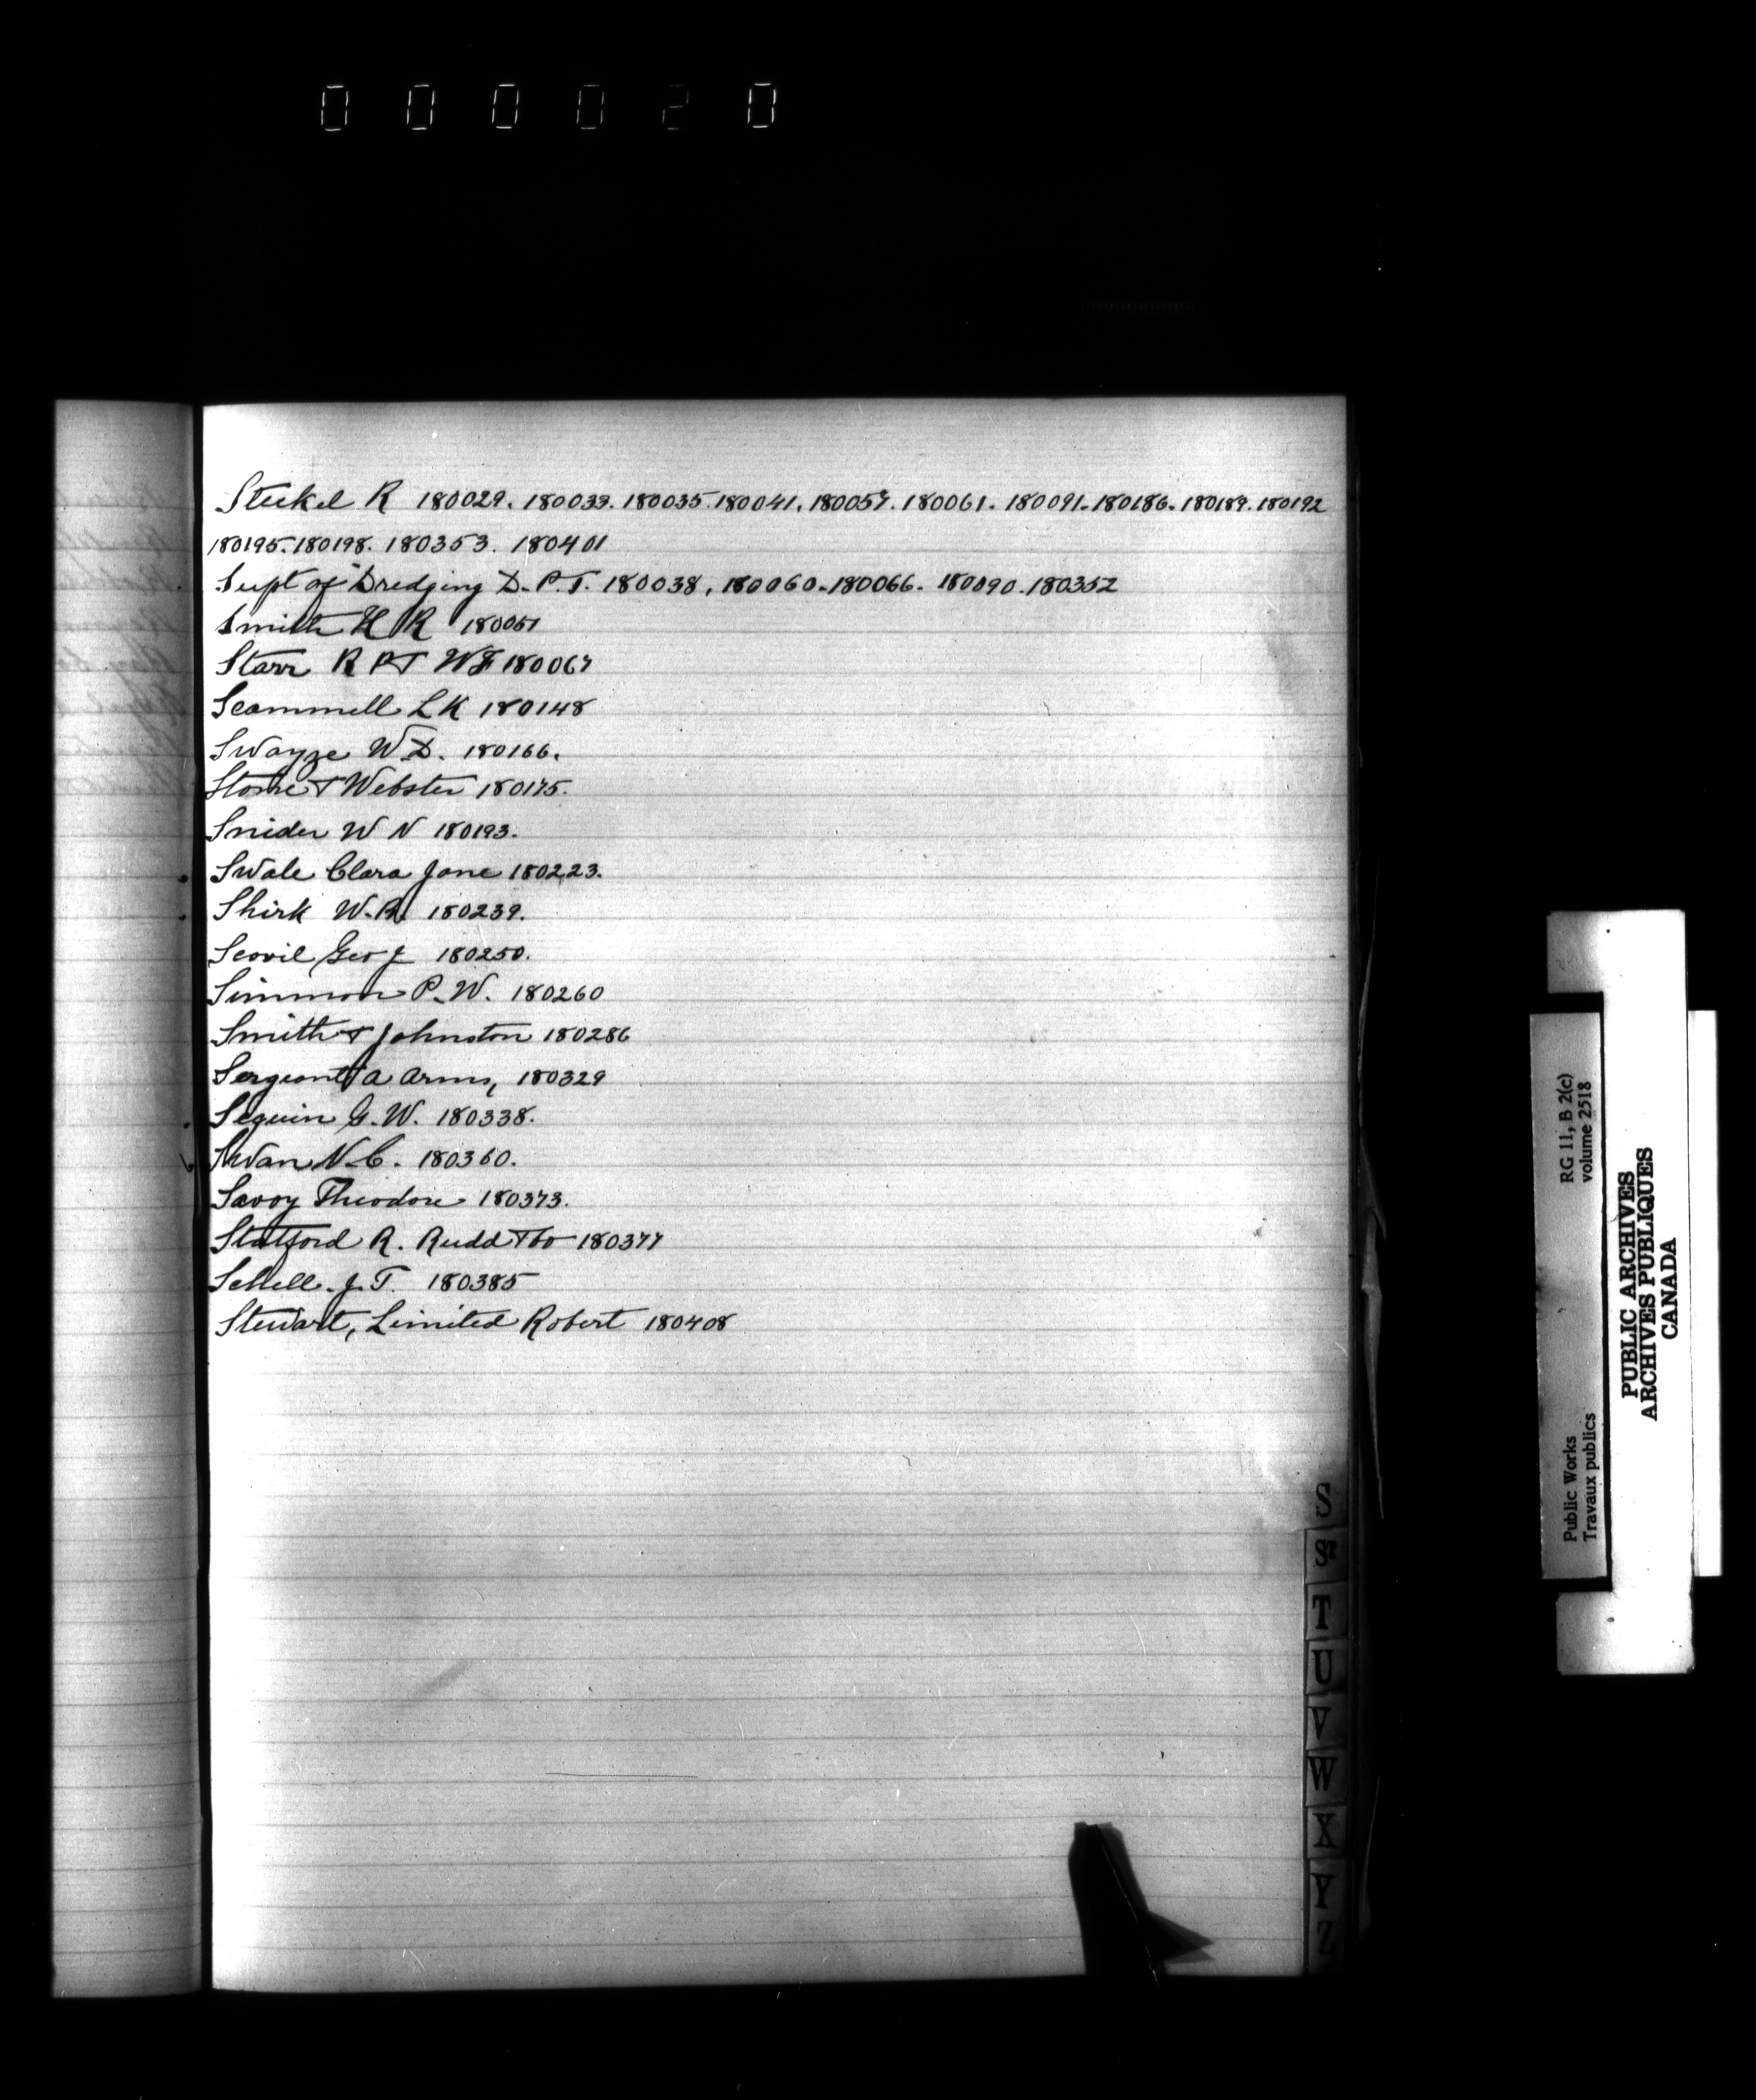 000020
Steckel R 180029. 180033. 180035. 180041. 180057. 180061. 180091. 180186. 180189. 180192
180195. 180198. 180353. 180401
Supt of Dredging D. P. T. 180038, 180060. 180066. 180090. 180352
Smith H R 180051
Starr R P & W F 180067
Scammell L K 180148
Swayze W D. 180166.
Stone & Webster 180175.
Snider W N 180193.
Swale Clara Jane 180223.
Shirk W. R. 180239.
Scovil Geo J 180250.
Simmon P. W. 180260
Smith & Johnston 180286
Sergeant a arms, 180329
Seguin G. W. 180338.
Swan N. C. 180360.
Savoy Theodore 180373.
Statford R. Rudd & Co 180377
Schell J. T. 180385
Stewart, Limited Robert 180408
S
S
T
U
V
W
X
Y
Z
Public Works
Travaux publics
RG 11, B 2(c)
volume 2518
PUBLIC ARCHIVES
ARCHIVES PUBLIQUES
CANADA